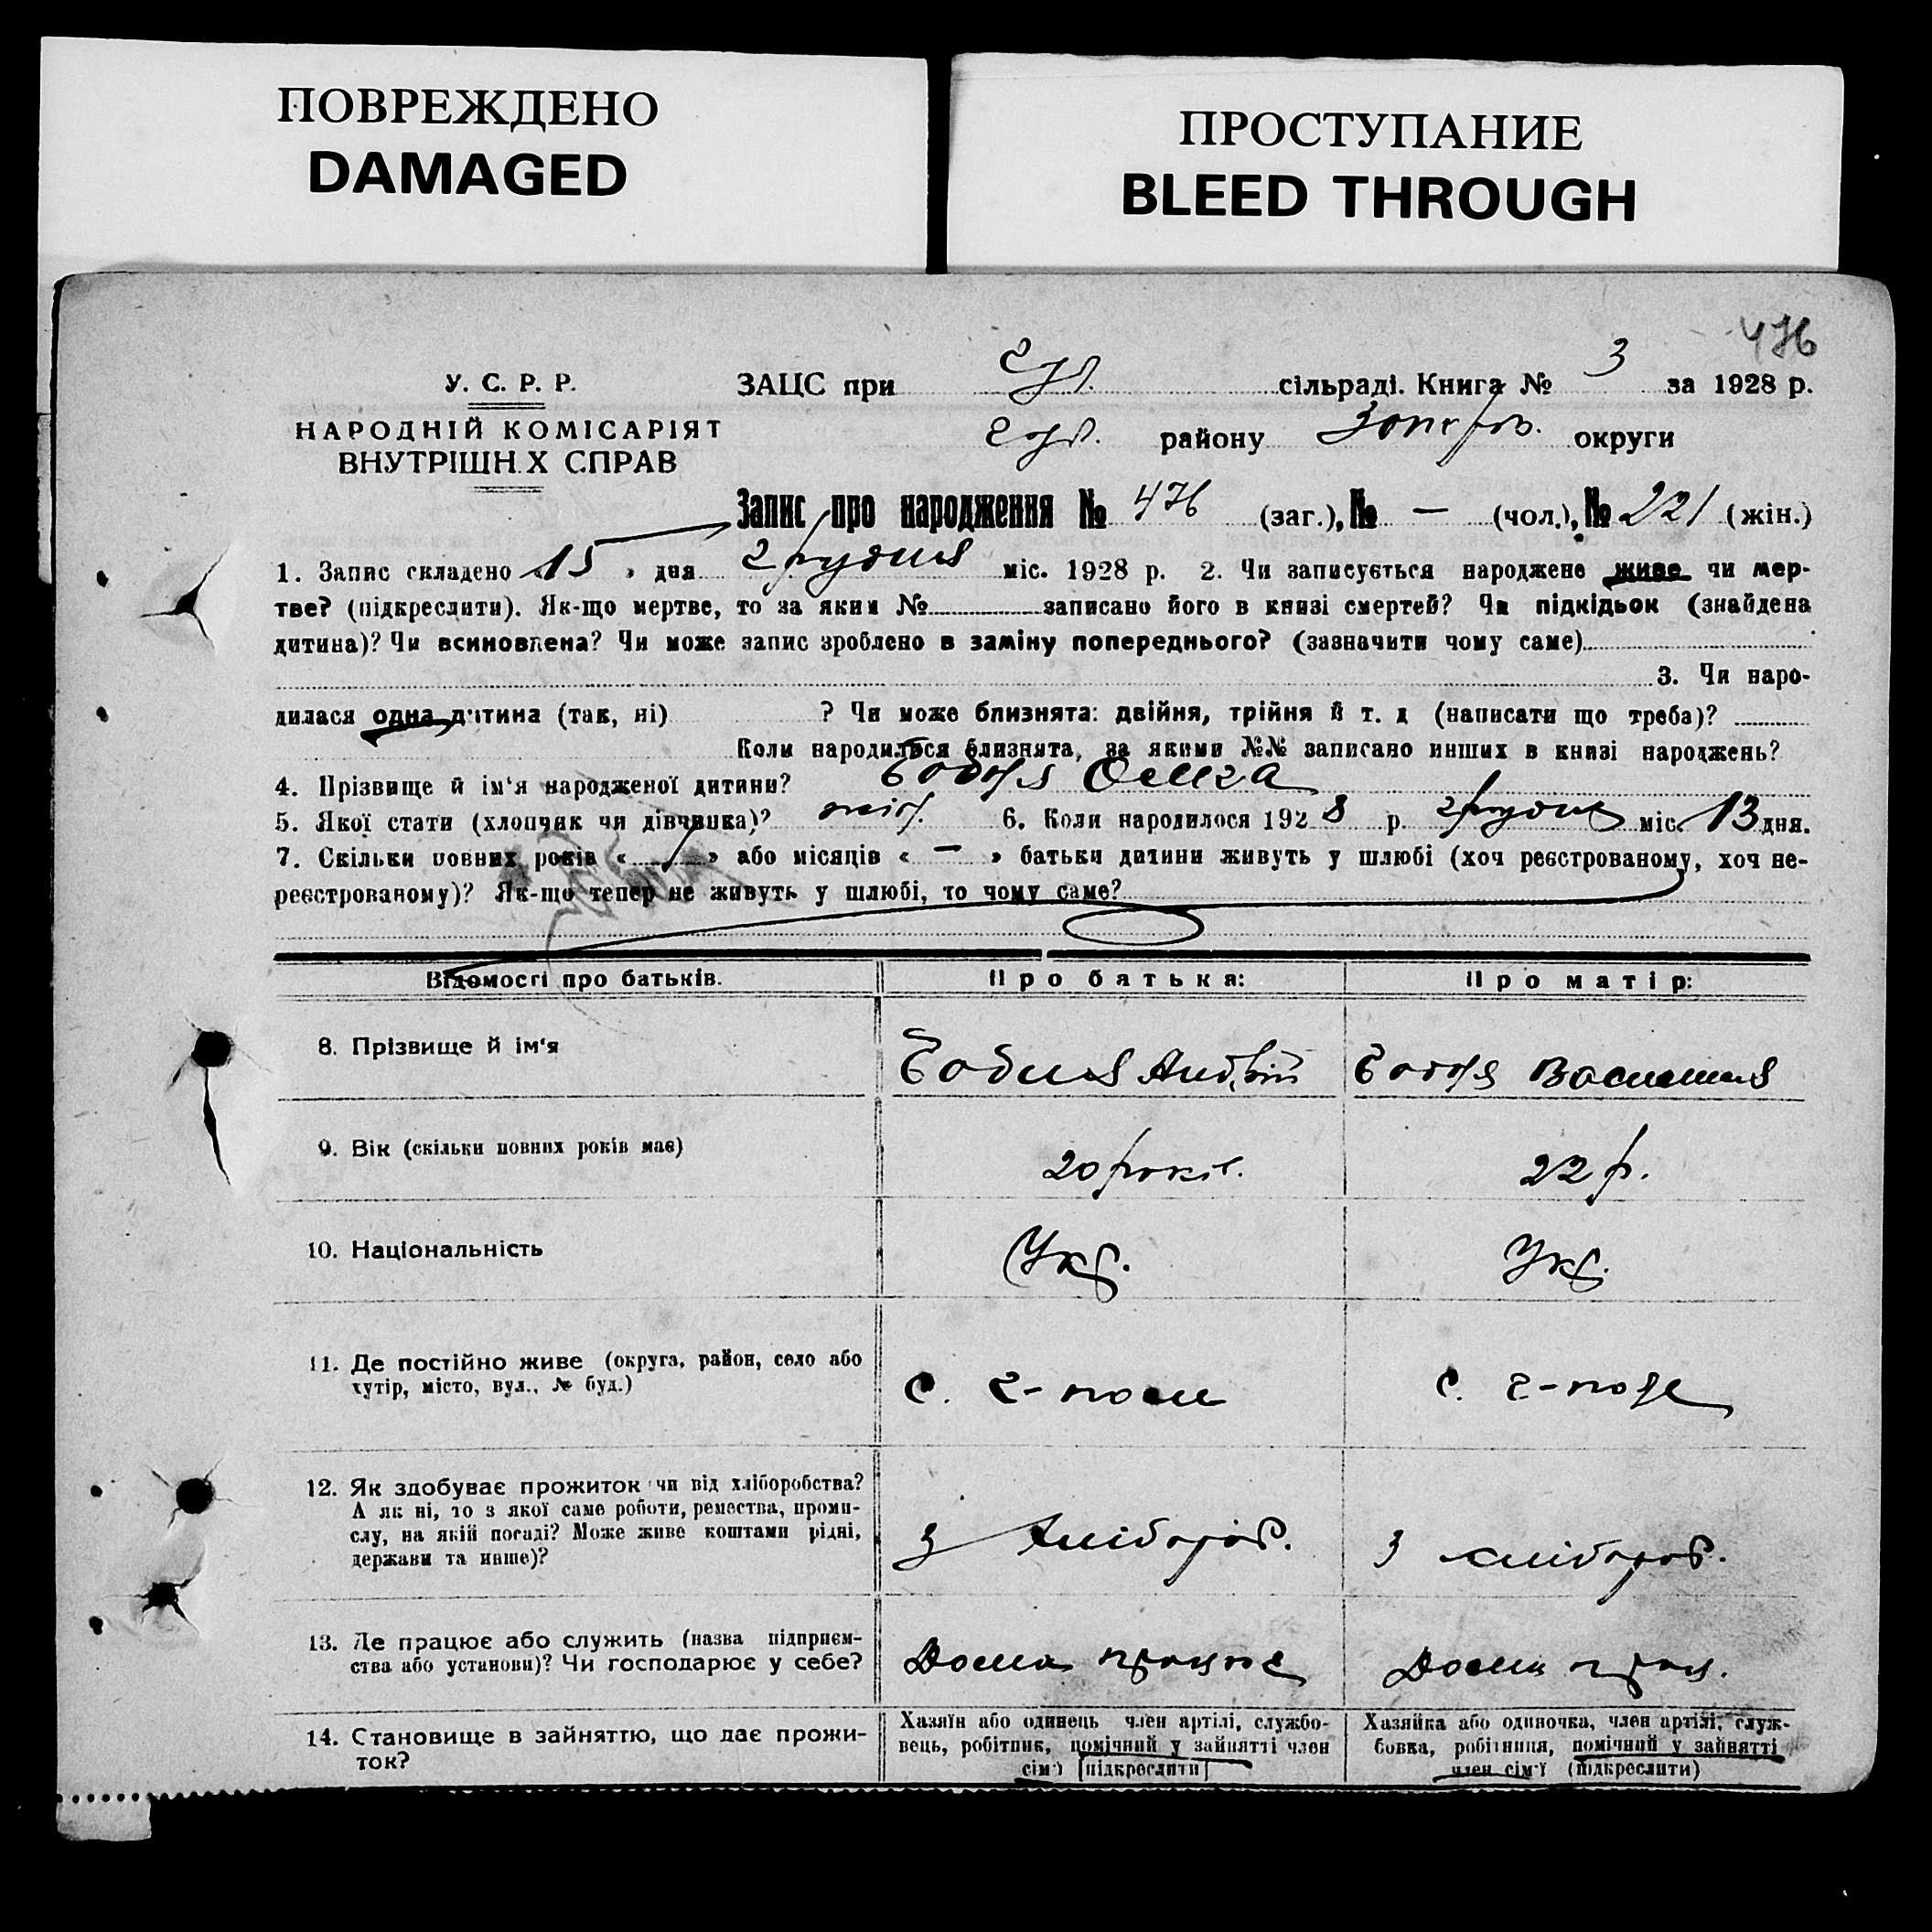 ПОВРЕЖДЕНО
DAMAGED
ПРОСТУПАНИЕ
BLEED THROUGH
476
У. С. Р. Р.
НАРОДНІЙ КОМІСАРІЯТ
ВНУТРІШН Х СПРАВ
ЗАЦС при сільраді. Книга № 3 за 1928 р.
району округи
Запис про народження № 476 (заг.), № — (чол.), № 221 (жін.)
1. Запис складено «15» дня грудня міс. 1928 р. 2. Чи записується народжене живе чи мер-
тве? (підкреслити). Як-що мертве, то за яким № записано його в книзі смертей? Чи підкідьок (знайдена
дитина)? Чи всиновлена? Чи може запис зроблено в заміну попереднього? (зазначити чому саме)
3. Чи наро-
дилася одна дитина (так, ні) ? Чи може близнята: двійня, трійня й т. д (написати що треба)?
Коли народилися близнята, за якими №№ записано инших в книзі народжень?
4. Прізвище й ім'я народженої дитини?
5. Якої стати (хлопчик чи дівчинка)? 6. Коли народилося 1928 р. грудня міс. 13 дня.
7. Скільки повних років « 1 » або місяців « — » батьки дитини живуть у шлюбі (хоч реєстрованому, хоч не-
реєстрованому)? Як-що тепер не живуть у шлюбі, то чому саме?
Відомості про батьків. Про батька: Про матір:
8. Прізвище й ім'я Андрій
9. Вік (скільки повних років має) 20 років. 22 р.
10. Національність Укр. Укр.
11. Де постійно живе (округа, район, село або
хутір, місто, вул., № буд.)
с. Г-поле с. Г-поле
12. Як здобуває прожиток чи від хліборобства?
А як ні, то з якої саме роботи, ремества, проми-
слу, на якій посаді? Може живе коштами рідні,
держави та инше)?
З хлібороб. З хлібороб.
13. Де працює або служить (назва підприєм-
ства або установи)? Чи господарює у себе?
Дома працює Дома прац.
14. Становище в зайняттю, що дає прожи-
ток?
Хазяїн або одинець член артілі, службо-
вець, робітник, помічний у зайнятті член
сім'ї [підкреслити]
Хазяйка або одиночка, член артілі, служ-
бовка, робітниця, помічний у зайнятті
член сім'ї (підкреслити)